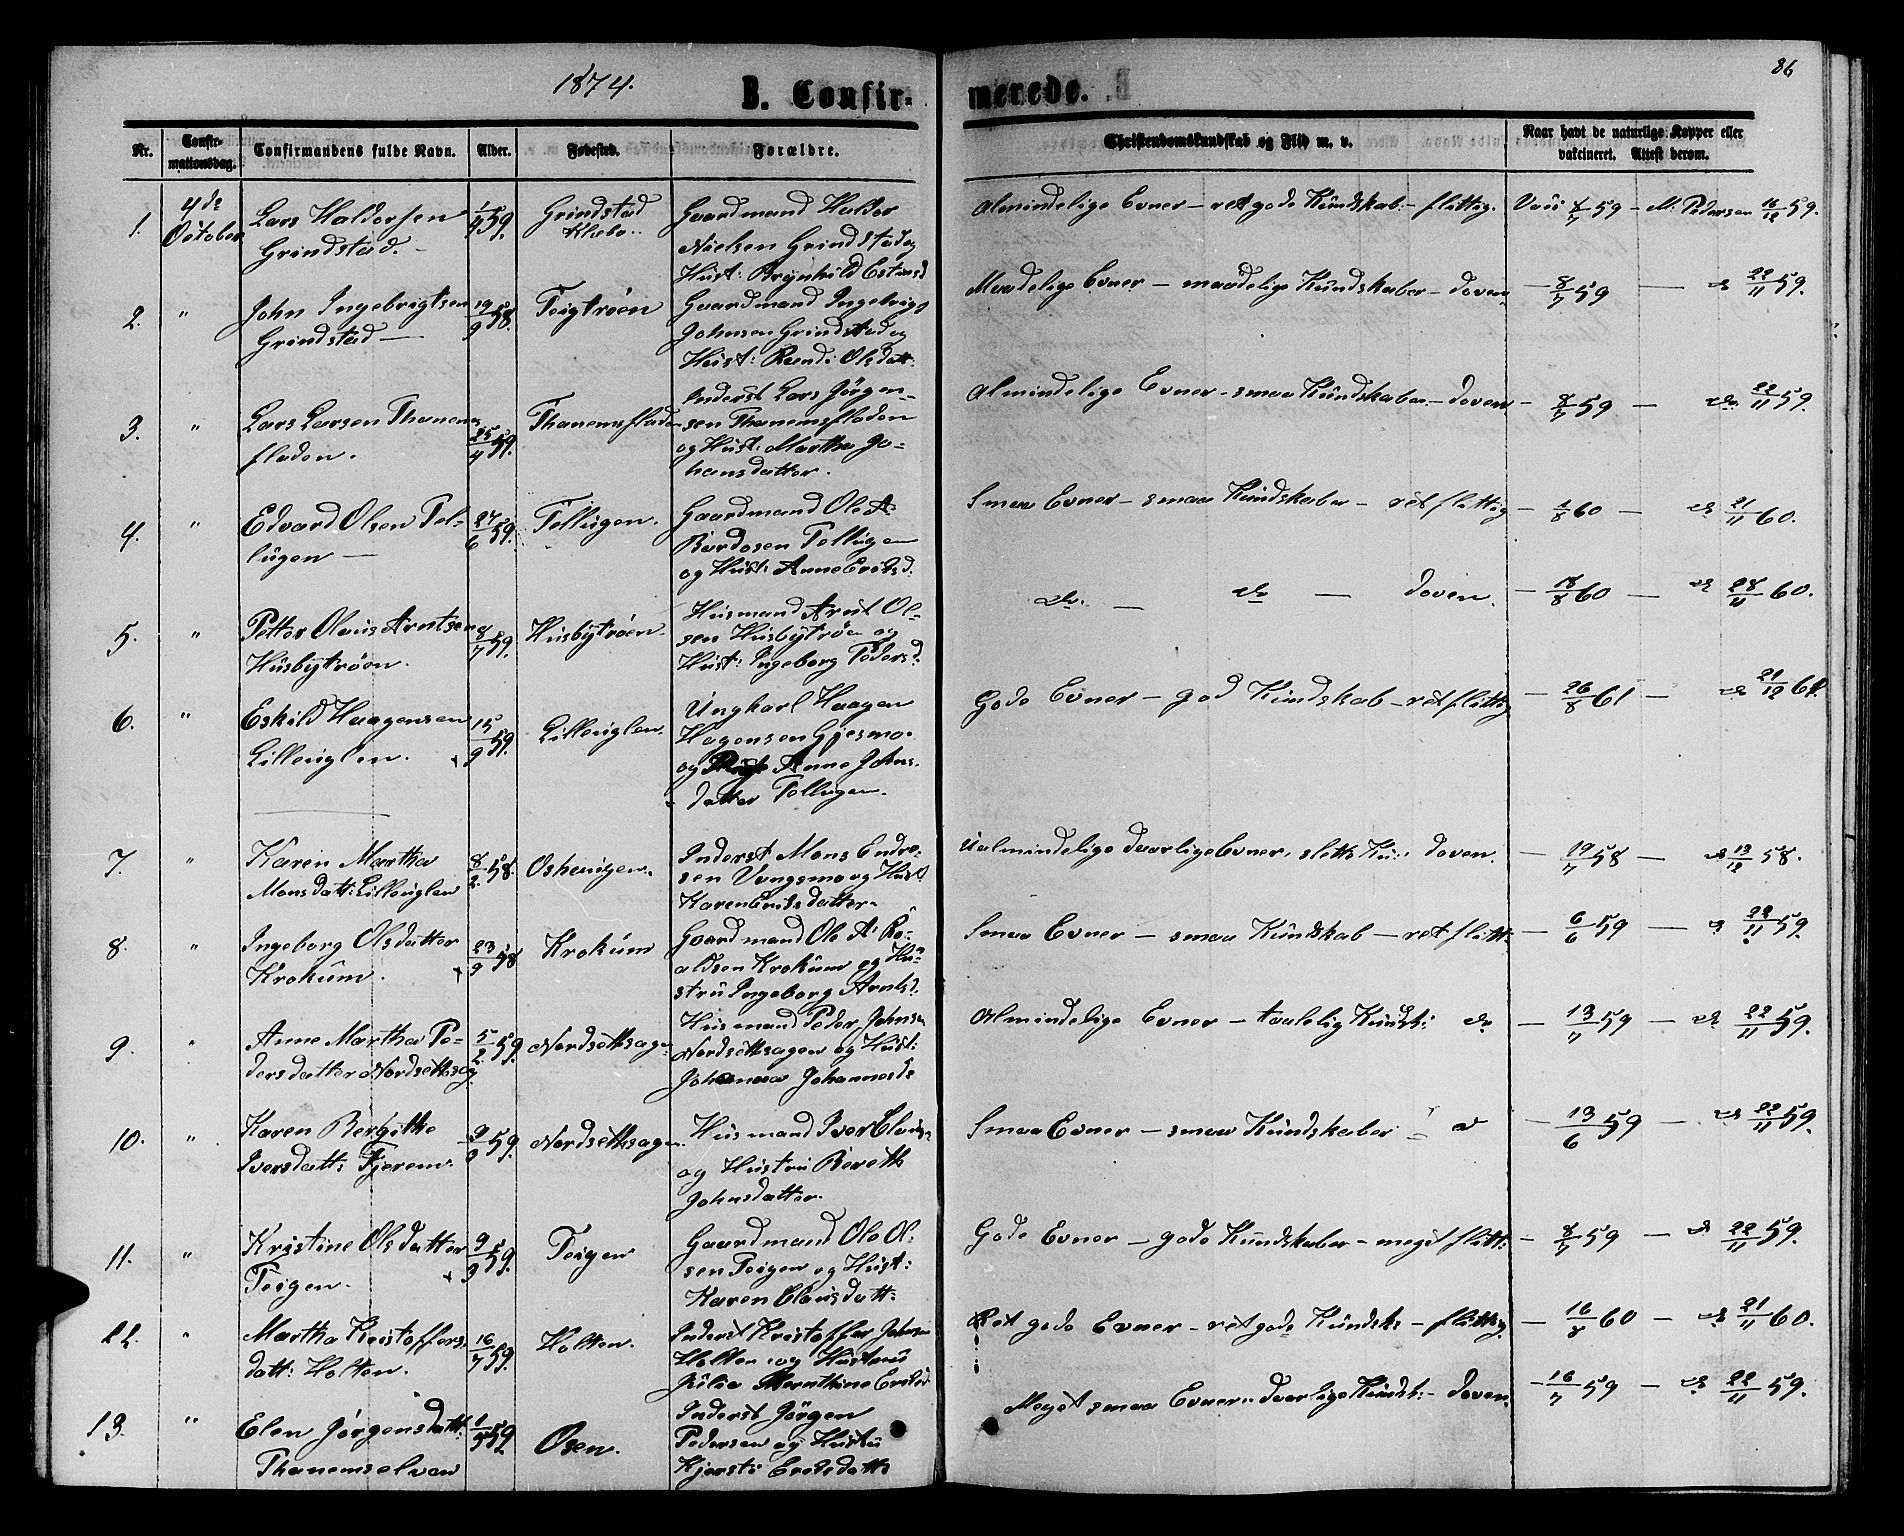 1874.
B. Confir-
merede.
86
Nr.
Confir-
mationsdag.
Confirmandens fulde Navn.
Alder.
Fødested.
Forældre.
Christendomskundskab og Flid m. v.
Naar havt de naturlige Kopper eller
vakcineret. Attest derom.
1.
4de
October
Lars Haldorsen
Grindstad.
Grindstad
Klæbo
Gaardmand Haldor
Nielsen Grindstad og
Hust: Brynhild
Almindelige Evner – ret gode Kundskab. – flittig.
8/7 59 – M. Pedersen 16/12 59.
2.
"
John Ingebrigtsen
Grindstad –
19/9 58.
Teigtrøen
Gaardmand Ingebrigt
Johnsen Grindstad og
Hust: Olsdatt.
Maadelige Evner – maadelige Kundskaber – doven
– 8/7 59 – 22/11 59.
3.
"
Lars Larsen Thanem
fladen.
25/4 59.
Thanemsfladen
Inderst Lars Jørgen-
sen Thanemsfladen
og Hust: Martha Jo-
hansdatter.
Almindelige Evner – smaa Kundskaber – doven
– 8/7 59 – do 22/11 59.
4.
"
Edvard Olsen Tel-
lugen –
27/6 59.
Tellugen.
Gaardmand Ole A.
Bardosen Tellugen
og Hust: Anne Eriksd.
Smaa Evner – smaa Kundskaber – ret flittig
60 – 21/11 60.
5.
"
Petter Olaus Arntsen
Husbytrøen.
8/7 59.
Husbytrøen.
Husmand Arnt Ol-
sen Husbytrøen og
Hust: Ingeborg Pedersd.
do. – do – doven.
– 18/8 60 – 28/11 60.
6.
"
Eskild Haagensen
Lilleuglen.
15/9 59.
Lilleuglen.
Ungkarl Haagen
Hagensen Gjesmo
og Pige Anne Johns
datter Tellugen.
Gode Evner – god Kundskab – ret flittig
– 26/8 61 – 21/12 61.
7.
"
Karen Martha
Monsdatt: Lilleuglen
8/2 58.
Oshaugen.
Inderst Mons Endre-
sen Vongsmo og Hust
Karen Eriksdatter.
Ualmindelige daarlige Evner, slette Ku: doven.
– 19/7 58 – 13/12 58.
8.
"
Ingeborg Olsdatter
Krokum.
23/9 58
Krokum
Gaardmand Ole A. Ro-
aldsen Krokum og Hu-
stru Ingeborg Arntsd.
Smaa Evner – smaa Kundskab – ret flitt:
– 6/6 59 – 22/11 59.
9.
"
Anne Martha Pe-
dersdatter Nordsethsag
5/2 59.
Nordsethsagen
Husmand Peder Johnsen
Nordsethsagen og Hust:
Johanna Johannesd.
Almindelige Evner – taalelig Kundsk: do
– 13/7 59 – do 22/11 59.
10.
"
Karen Bergitte
Iversdatt: Tjerem.
59.
Nordsethsagen.
Husmand Iver
og Hustru Bereth
Johnsdatter.
Smaa Evner – smaa Kundskaber
– 13/6 59 – 22/11 59.
11.
"
Kristine Olsdatter
Teigen.
9/3 59.
Teigen
Gaardmand Ole Ol-
sen Teigen og Hust:
Karen Clausdatt:
Gode Evner – gode Kundskaber – meget flitt:
– 8/7 59 – 22/11 59.
12.
"
Martha Kristoffers
datt: Holten.
16/7 59.
Holten.
Inderst Kristoffer Johnsen
Holten og Hustru
Julia Eriksd
Ret gode Evner – ret gode Kundsk: – flittig.
– 16/8 60 – 21/11 60.
13.
"
Elen Jørgensdatt:
Thanemselven
59.
Osen.
Inderst Jørgen
Pedersen og Hustru
Kjersti Eriksdatt:
Meget smaa Evner. daarlige Kundsk: – doven.
– 16/7 59 – 22/11 59.